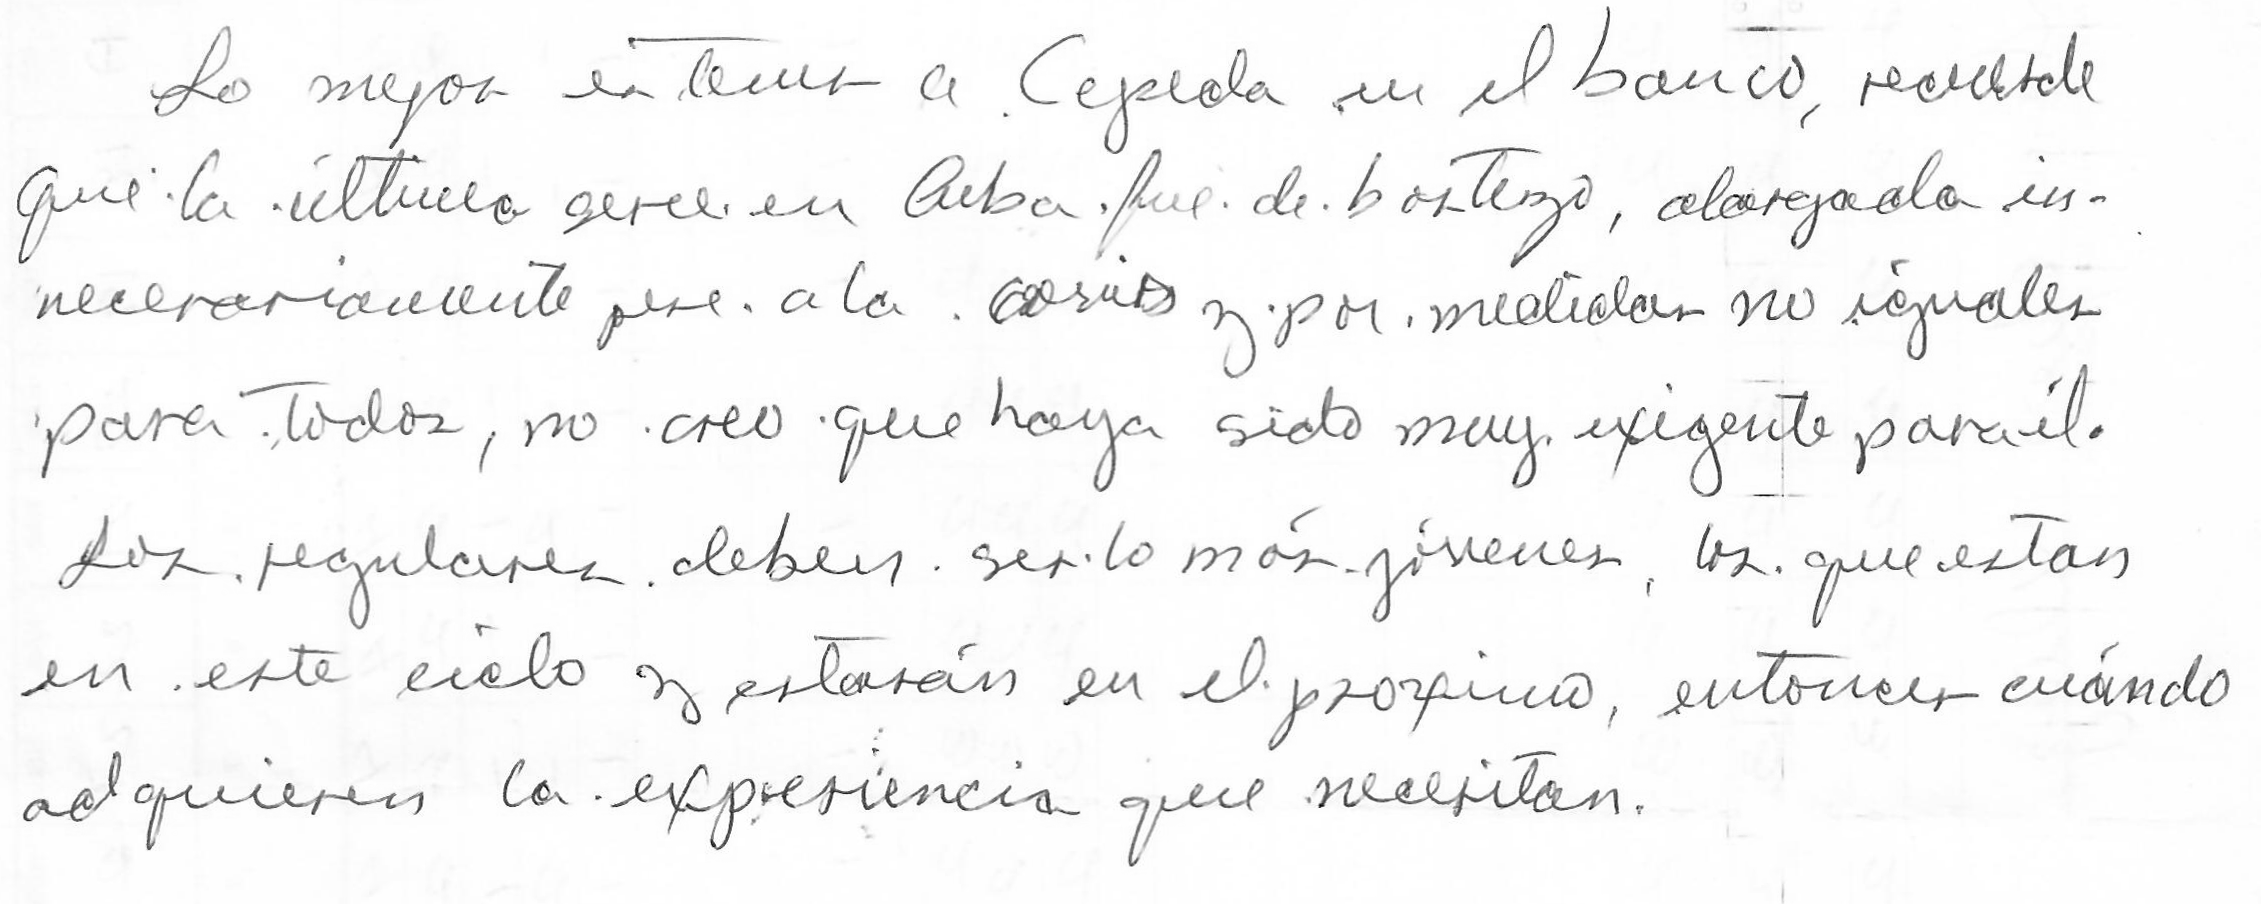 Lo mejor es tener a Cepeda en el banco, recuerde
que la última serie en Cuba fue de bostezo, alargada in-
necesariamente pese a la crisis y por medidas no iguales
para todos, no creo que haya sido muy exigente para él.
Los regulares deben ser lo más jóvenes, los que estan
en este ciclo y estarán en el proximo, entonces cuándo
adquieren la experiencia que necesitan.